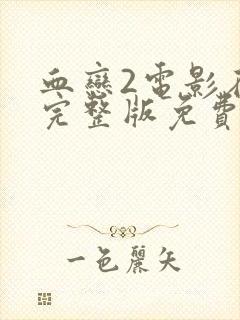 血戀2電影在
完整版免費
一色麗矢